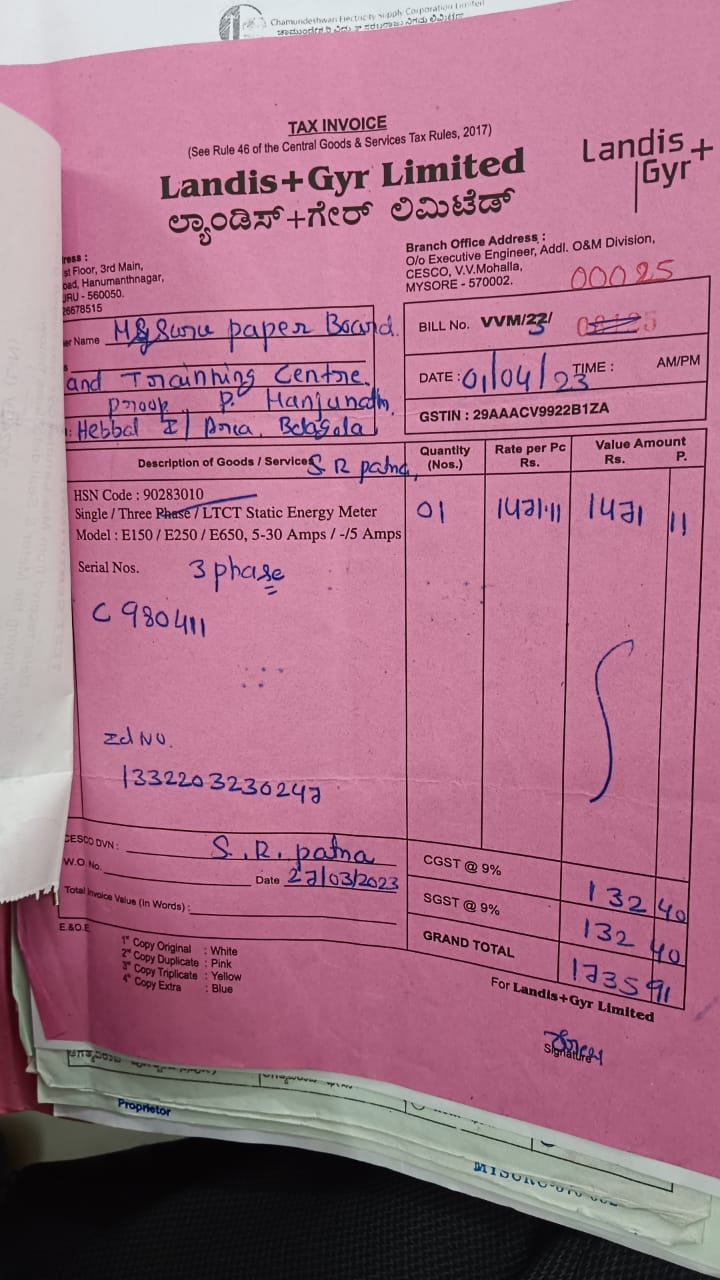 Chamundeshwari Electricity Supply Corporation Limited
TAX INVOICE
(See Rule 46 of the Central Goods & Services Tax Rules, 2017)
Landis+Gyr Limited
ಲ್ಯಾಂಡಿಸ್+ಗೇರ್ ಲಿಮಿಟೆಡ್
Landis+
Gyr
ress :
st Floor, 3rd Main,
oad, Hanumanthnagar,
URU - 560050.
26678515
Branch Office Address :
O/o Executive Engineer, Addl. O&M Division,
CESCO, V.V.Mohalla,
MYSORE - 570002.
00025
er Name Mysuru paper Board
and Trainning Centre.
proop P. Manjunath
Hebbal I/ Area, Belagola
BILL No. VVM/23/
DATE : 01/04/23 TIME : AM/PM
GSTIN : 29AAACV9922B1ZA
Description of Goods / Services S R patna,
Quantity (Nos.)
Rate per Pc Rs.
Value Amount Rs. P.
HSN Code : 90283010
Single / Three Phase / LTCT Static Energy Meter
Model : E150 / E250 / E650, 5-30 Amps / -/5 Amps
01 1471.11 1471 11
Serial Nos. 3 phase
C 980411
Id No.
1332203230247
CESCO DVN : S. R. patna
W.O. No. Date 27/03/2023
Total Invoice Value (In Words) :
E.&O.E
CGST @ 9% 132 40
SGST @ 9% 132 40
GRAND TOTAL 1735 91
1st Copy Original : White
2nd Copy Duplicate : Pink
3rd Copy Triplicate : Yellow
4th Copy Extra : Blue
For Landis+Gyr Limited
Signature
Proprietor